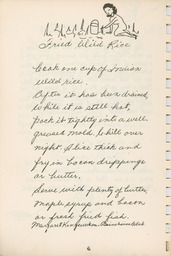 Fried Wild Rice
Cook one cup of Indian
wild rice.
After it has been drained,
while it is still hot,
pack it tightly into a well
greased mold. Chill over
night. Slice thick and
fry in bacon drippings
or butter.
Serve with plenty of butter,
maple syrup and bacon
or fresh fried fish.
Margaret
6